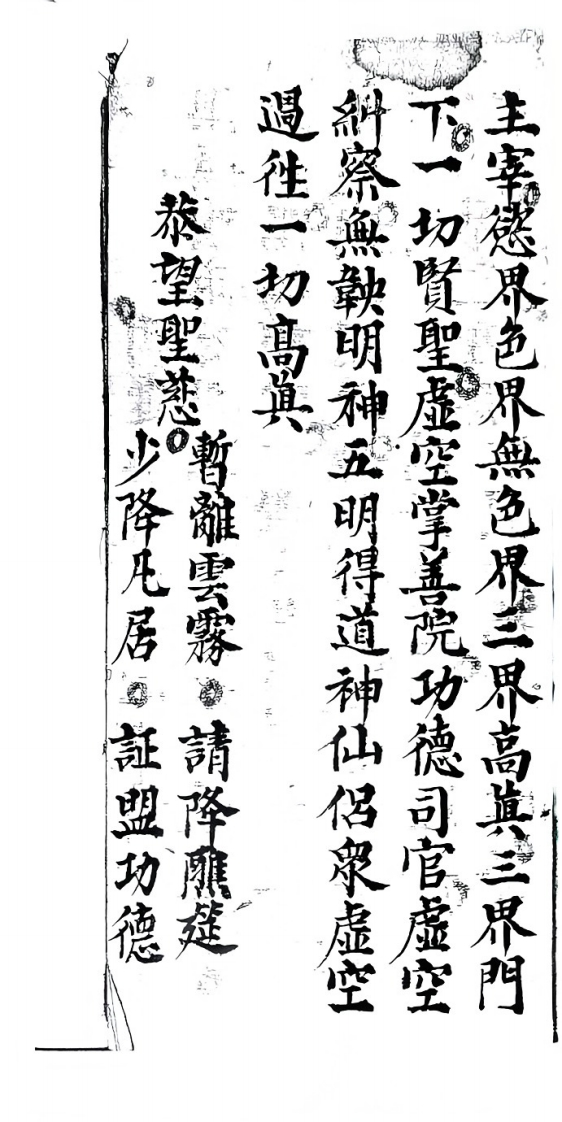 主宰慾界色界無色界三界高真三界門
下一切賢聖虛空掌善院功德司官虛空
糾察無鞅明神五明得道神仙侶衆虛空
過徃一切高真
恭望聖慈
暫離雲霧 請降醮筵
少降凡居 証盟功德